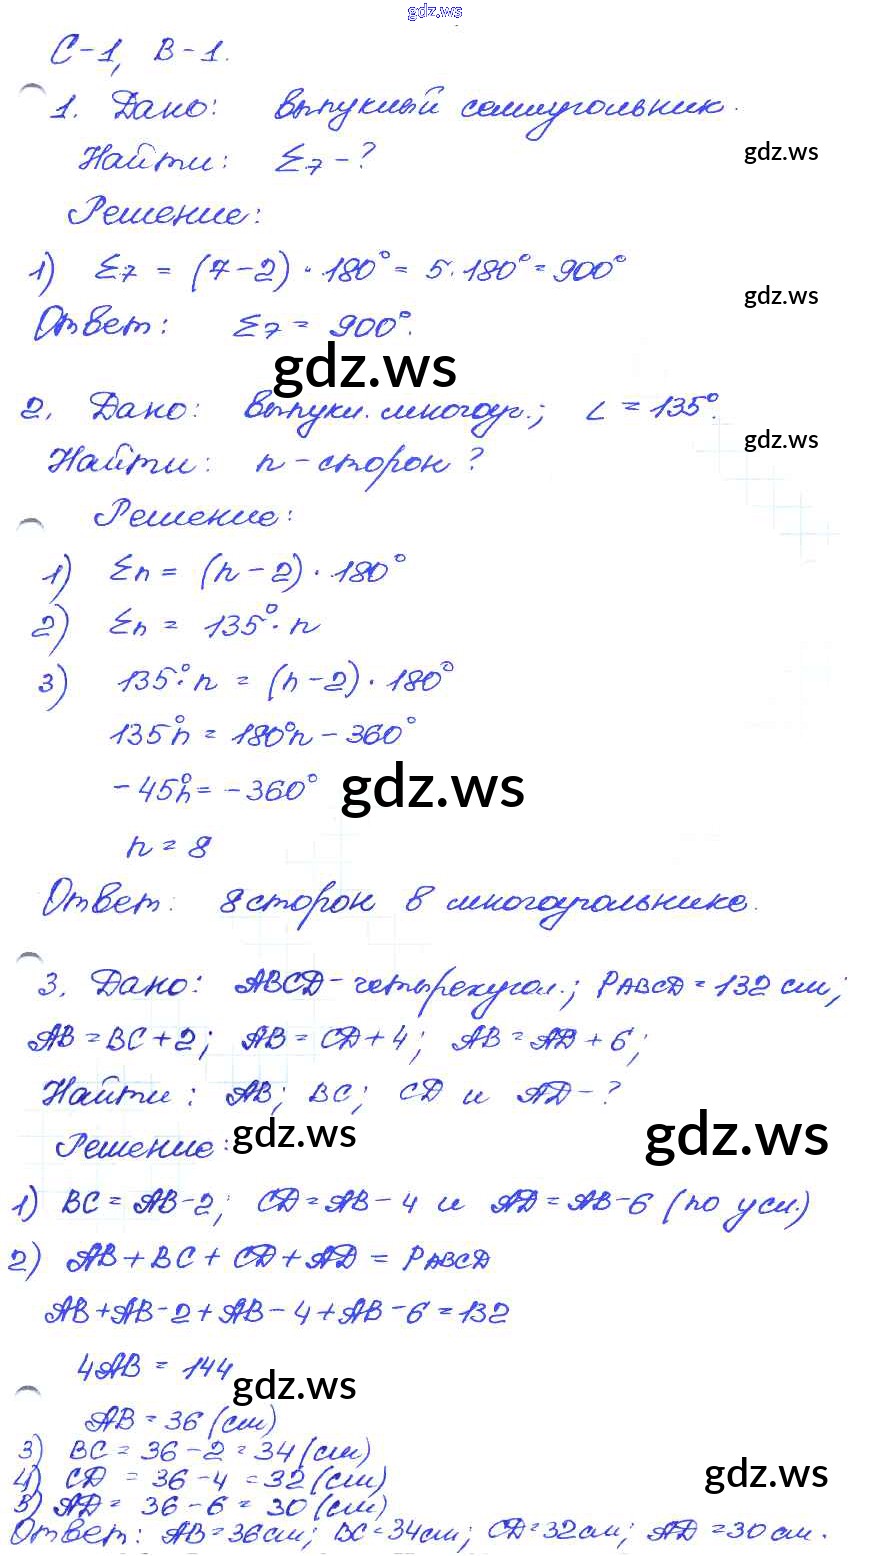 gdz.ws
С-1, В-1.
1. Дано: выпуклый семиугольник.
Найти: Σ7 - ?
gdz.ws
Решение:
1) Σ7 = (7-2)·180° = 5·180° = 900°
gdz.ws
Ответ: Σ7 = 900°.
gdz.ws
2. Дано: выпукл. многоуг.; ∠ = 135°.
gdz.ws
Найти: n - сторон?
Решение:
1) Σn = (n-2)·180°
2) Σn = 135°·n
3) 135°·n = (n-2)·180°
135°n = 180°n - 360°
-45°n = -360°
gdz.ws
n = 8
Ответ: 8 сторон в многоугольнике.
3. Дано: ABCD - четырехугол.; PABCD = 132 см;
AB = BC + 2; AB = CD + 4; AB = AD + 6;
Найти: AB; BC; CD и AD - ?
gdz.ws
gdz.ws
Решение:
1) BC = AB - 2; CD = AB - 4 и AD = AB - 6 (по усл.)
2) AB + BC + CD + AD = PABCD
AB + AB - 2 + AB - 4 + AB - 6 = 132
4AB = 144
gdz.ws
AB = 36 (см)
3) BC = 36 - 2 = 34 (см)
4) CD = 36 - 4 = 32 (см)
gdz.ws
5) AD = 36 - 6 = 30 (см)
Ответ: AB = 36 см; BC = 34 см; CD = 32 см; AD = 30 см.